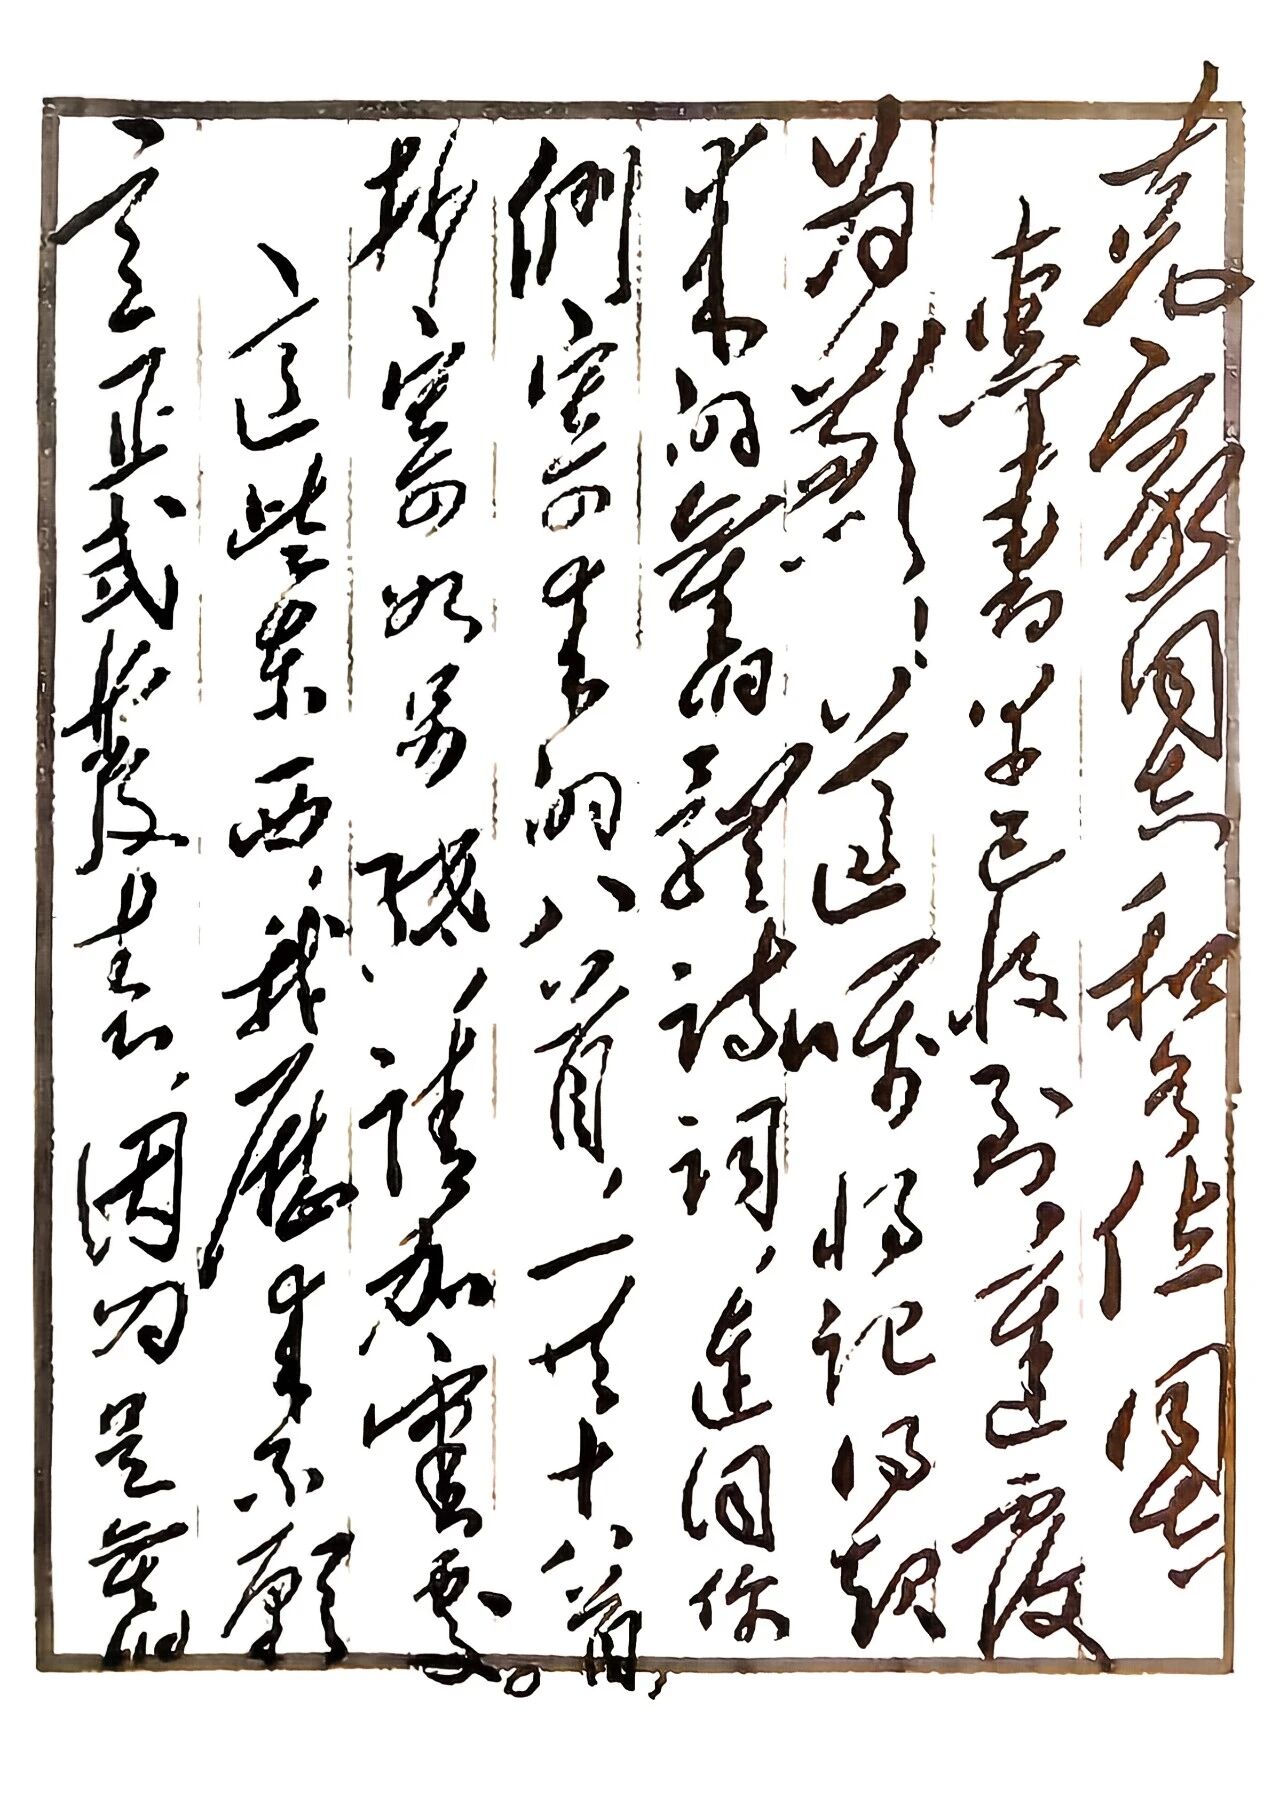 克家同志和各位同志
惠书早已收到，迟覆
为歉！遵嘱将记得起
来的舊體诗词，连同你
们寄来的八首，一共十八首，
抄寄如另纸，请加审处。
这些东西，我历来不愿
意正式發表，因为是舊